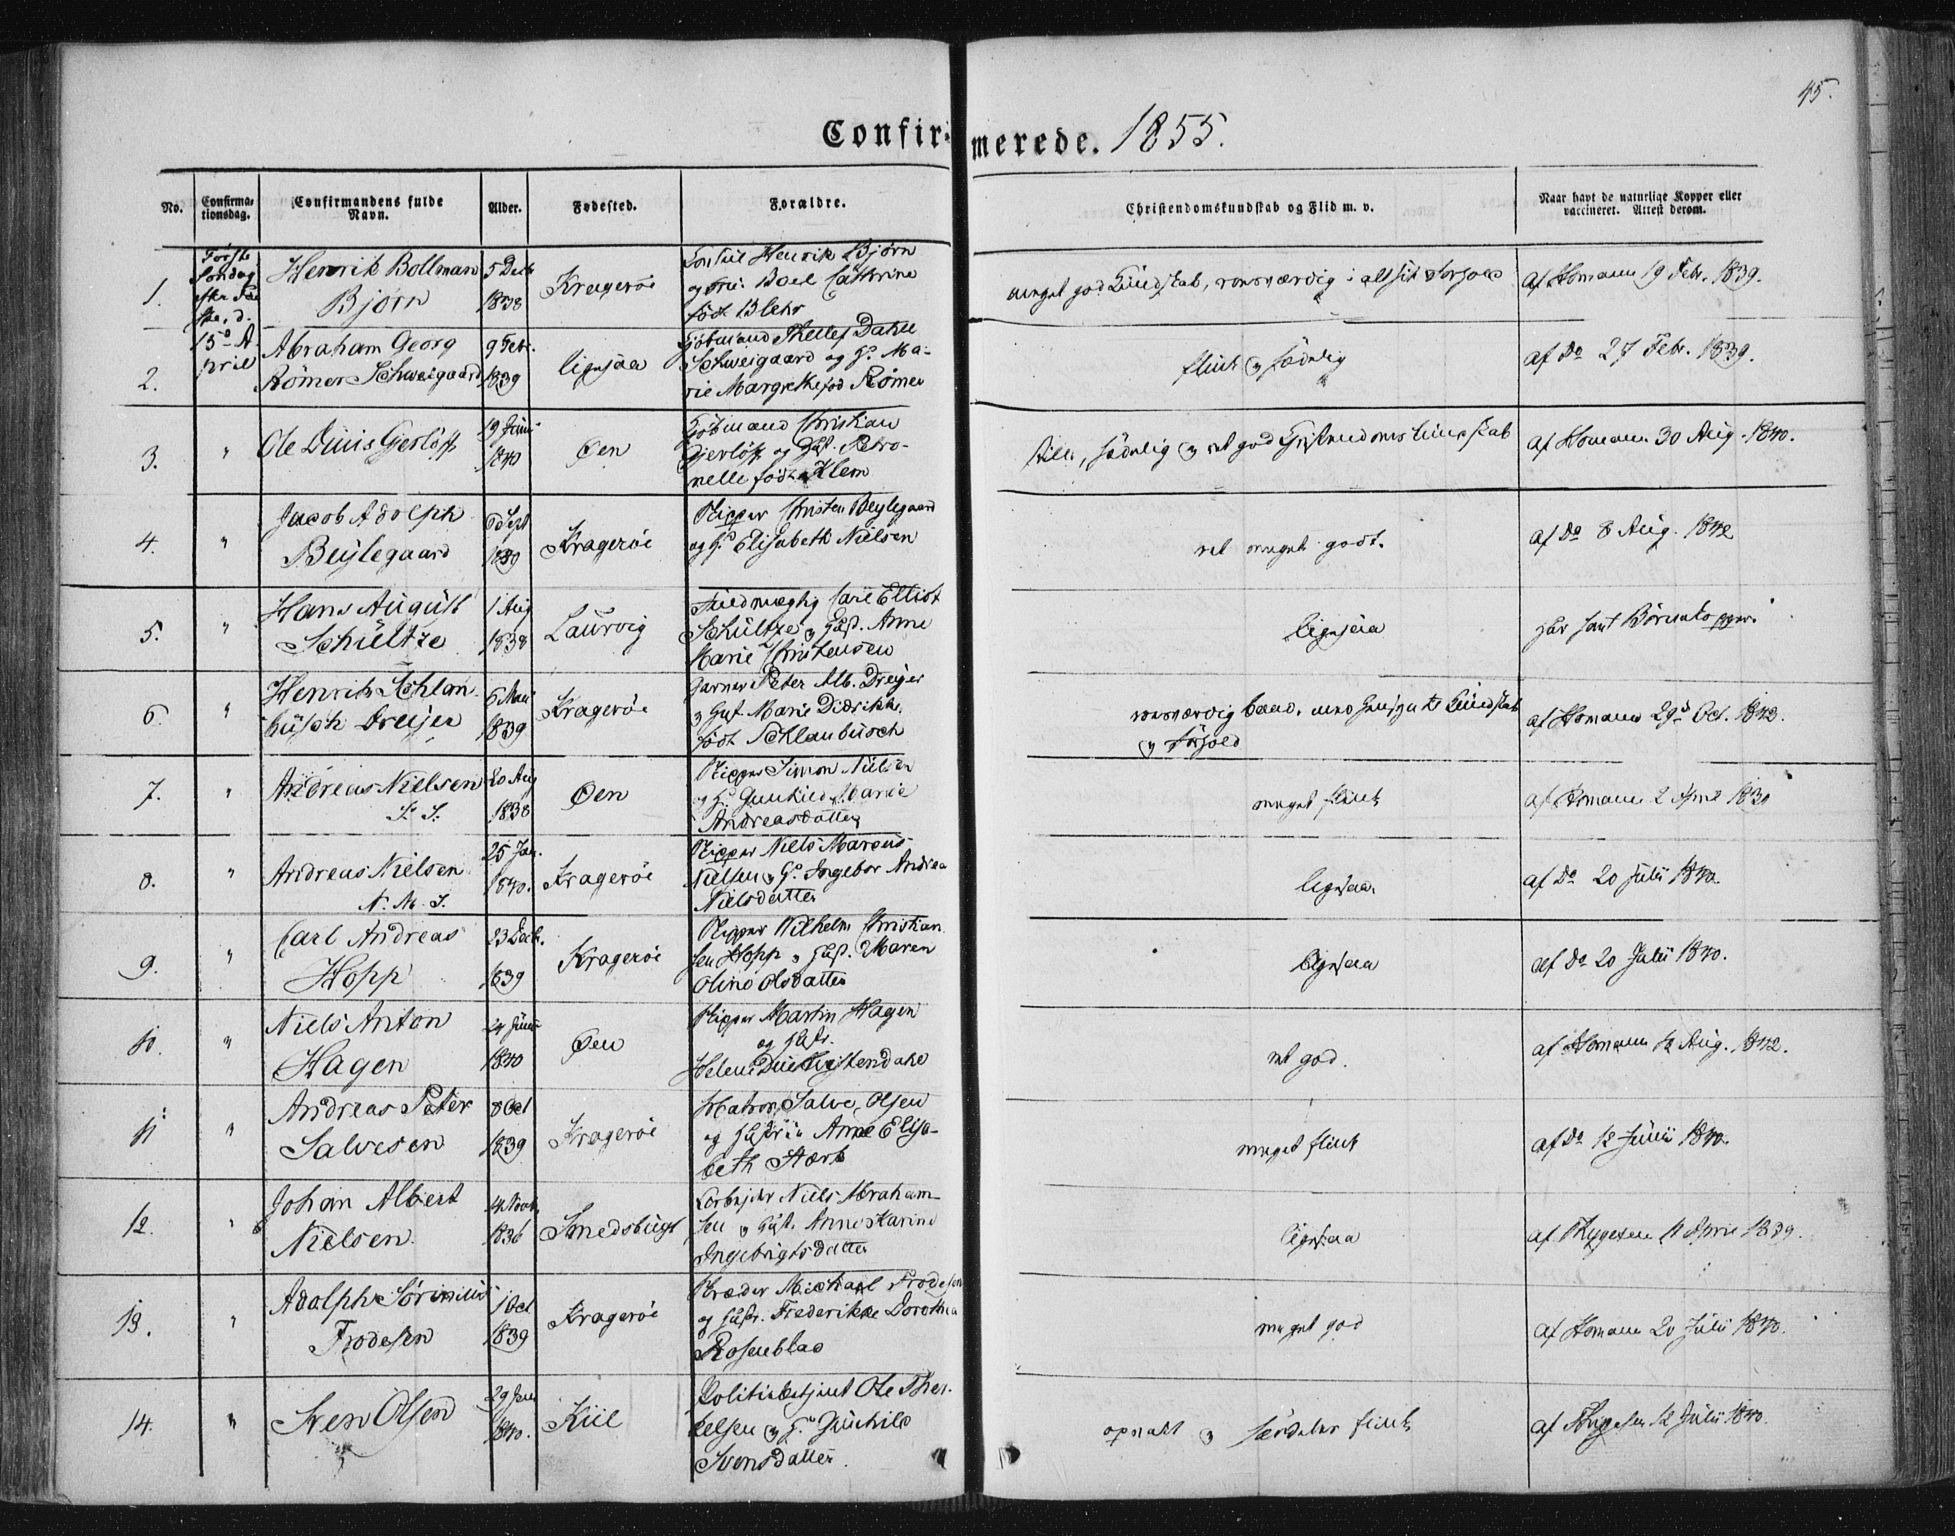 45.
Confirmerede. 1855.
No.
Confirmationsdag.
Confirmandens fulde Navn.
Alder.
Fødested.
Forældre.
Christendomskundskab og Flid m. v.
Naar havt de naturlige Kopper eller vaccineret. Attest derom.
Første
Søndag
15de A
pril
1.
Henrik Bollman
Bjørn
5 Decb
1838
Kragerøe
Consul Henrik Bjørn
Cathrine
født Blehr
meget god Kundskab, roesværdig i alt sit Forhold
af Homann 19 Febr. 1839.
2.
Abraham Georg
Rømer Schweigaard
9 Febr.
1839
ligesaa
Kjøbmand Thellef Dahll
Schweigaard og H. Ma-
rie Margrethe fød Rømer
flink og sædelig
af Do 27 Febr. 1839.
3.
"
Ole Duus Gjerløff
19 Juni
1840
Øen
Kjøbmand Christian
Gjerløff og Hust. Petro-
nelle født Klem
stille, sædelig og ret god Christendomskundskab
af Homann 30 Aug. 1840.
4.
"
Jacob Adolph
Beylegaard
6 Sept
1839
Kragerøe
Skipper Christen Beylegaard
og H. Elisabeth Nielsen
ret meget godt.
af Do 8 Aug. 1842
5.
"
Hans August
Schultze
1 Aug
1838
Laurvig
Fuldmægtig Carl Elliot
Schultze og Hust. Anne
Marie Christensen
ligesaa
har havt Børnekopper.
6.
"
Henrik Schlan
busch Dreyer
6 Mai
1839
Kragerøe
Garver Peter Alb. Dreyer
og Hust. Marie Didrikke
født Schlanbusch
og Forhold
af Homann 29d Oct. 1843.
7.
"
Andreas Nielsen
S. S.
20 Aug
1838
Øen
Skipper Simon Nielsen
og H. Gunhild Marie
Andreasdatter
meget flink
8.
"
Andreas Nielsen
N. M. S.
25 Jan.
1840.
Kragerøe
Skipper Niels Marcus
Nielsen og H. Ingebor Andrea
Nielsdatter
ligesaa
af Do 20 Julii 1840.
9.
"
Carl Andreas
Hopp
23 Decb.
1839
Kragerøe
Skipper Vilhelm Christian
sen Hopp og Hust. Maren
Oline Olsdatter
ligesaa
af Do 20 Julii 1840.
10.
"
Niels Anton
Hagen
24 Juni
1840
Øen
Skipper Martin Hagen
og Hust.
ret god.
af Homann 12 Aug. 1842.
11
"
Andreas Peter
Salvesen
8 Oct
1839
Kragerøe
Matros Salve Olsen
og Hustrue Anne Elisa-
beth Stærk
meget flink
af Do 12 Junii 1840.
12.
"
Johan Albert
Nielsen
1836
Smedsbugt
Arbejder Niels Abraham-
sen og Hust. Anne Karine
Ingebrigtsdatter
ligesaa
af Thygesen 11 April 1839.
13.
"
Adolph Sørinius
Frodesen
1 Oct
1839
Kragerøe
Skræder Michael Frodesen
og Hustr. Frederikke Dorothea
Rosenblad
meget god
af Homann 20 Julii 1840.
14.
"
Sven Olsen
29 Jan
1840.
Kiil
Politiebetjent Ole Ther-
kelsen og H. Gunhild
Svensdatter.
opvakt og særdeles flink
af Thygesen 12 Julii 1840.